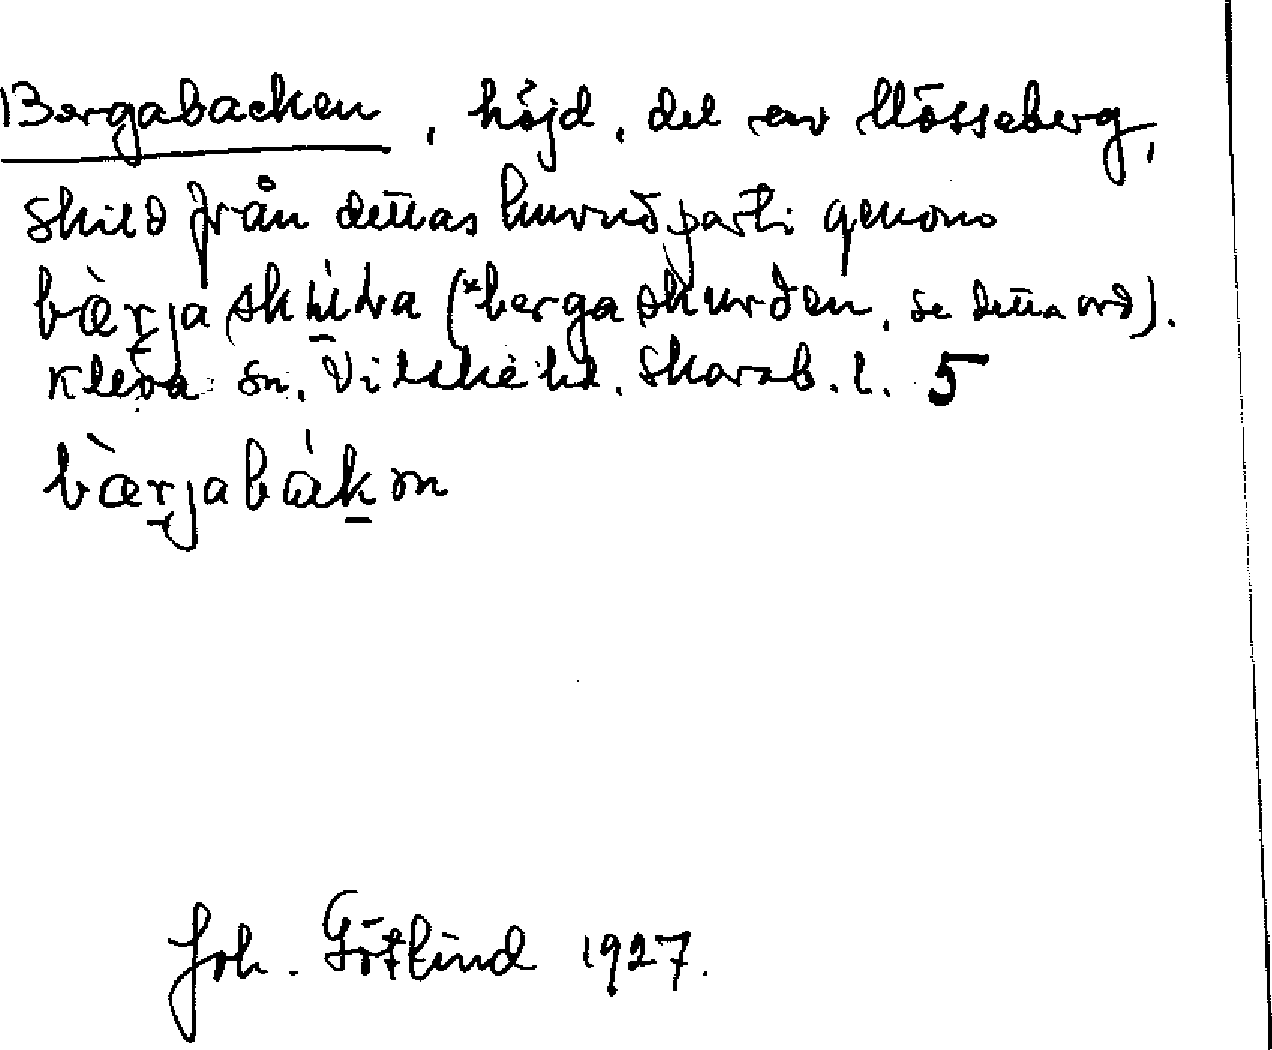 Bergabacken, höjd, del av Mösseberg,
skild från dettas huvudparti genom
bæ̀rjaskúdra (*bergaskurden, se detta ord).
Kleva sn. Vilske hd. Skarab. l. 5
bæ̀rjabák̠ən
Joh. Götlind 1927.